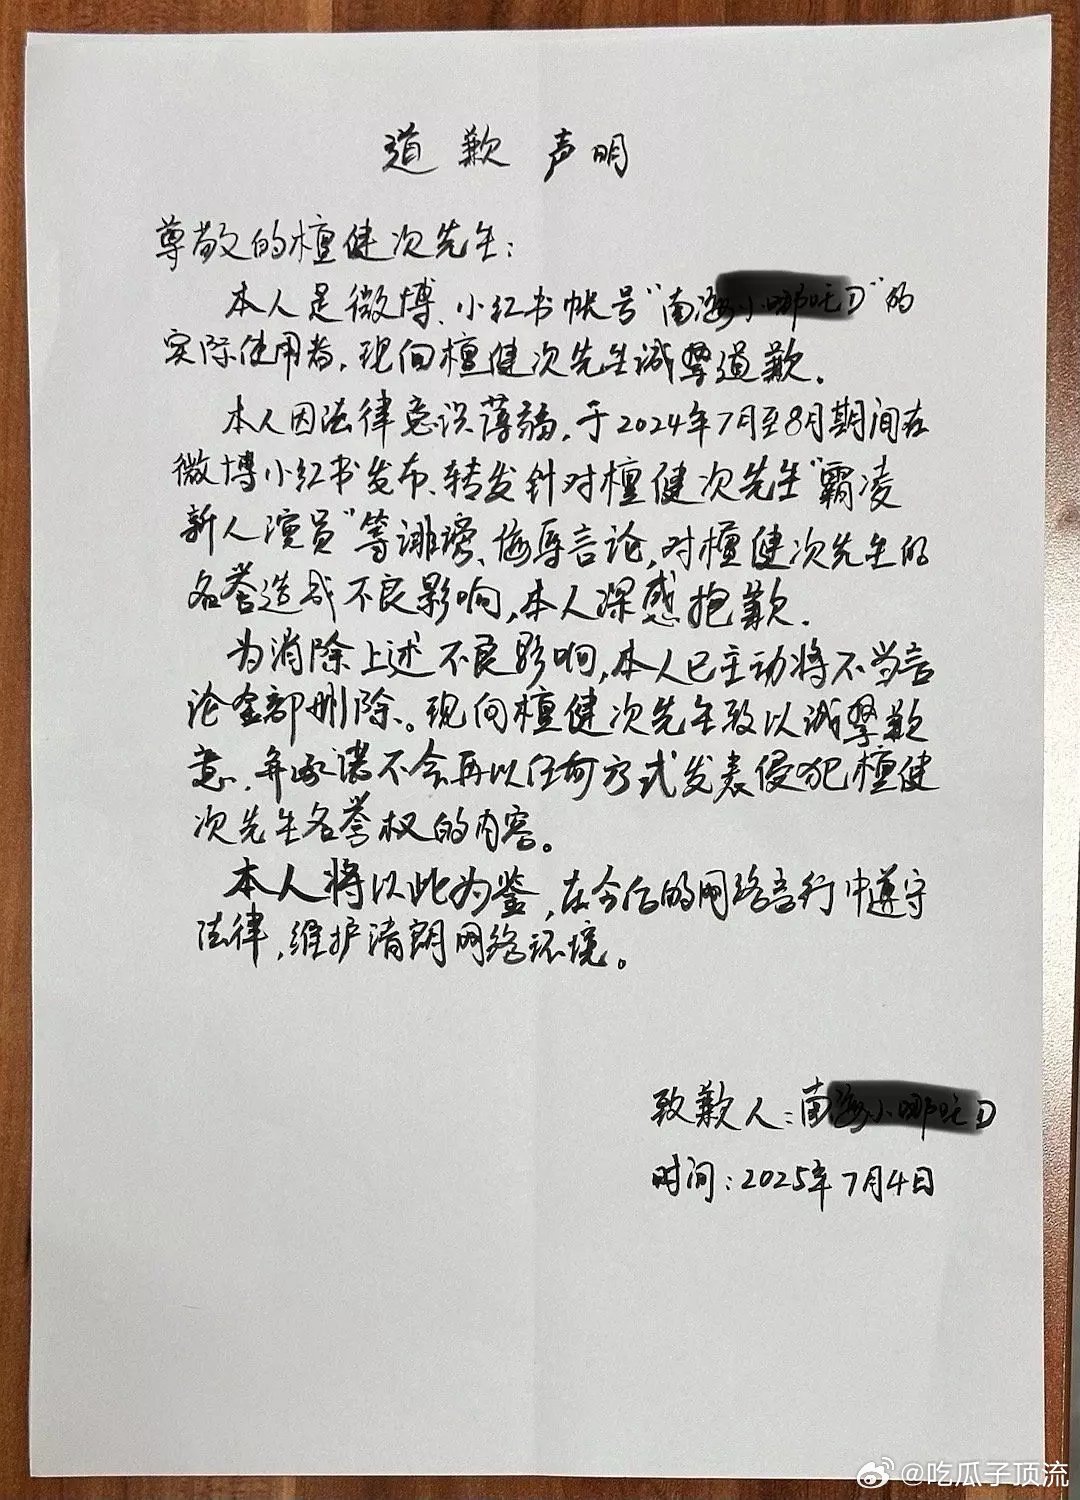 道歉声明
尊敬的檀健次先生：
本人是微博、小红书帐号“南海小哪吒D”的
实际使用者，现向檀健次先生诚挚道歉。
本人因法律意识薄弱，于2024年7月至8月期间在
微博小红书发布、转发针对檀健次先生“霸凌
新人演员”等诽谤、侮辱言论，对檀健次先生的
名誉造成不良影响，本人深感抱歉。
为消除上述不良影响，本人已主动将不当言
论全部删除。现向檀健次先生致以诚挚歉
意，并承诺不会再以任何方式发表侵犯檀健
次先生名誉权的内容。
本人将以此为鉴，在今后的网络言行中遵守
法律，维护清朗网络环境。
致歉人：南
时间：2025年7月4日
@吃瓜子顶流